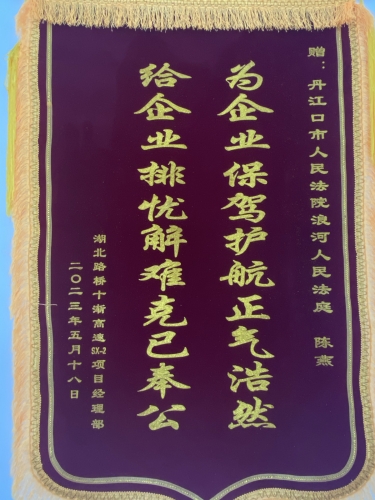 赠：丹江口市人民法院浪河人民法庭 陈燕
为企业保驾护航正气浩然
给企业排忧解难克已奉公
湖北路桥十淅高速SX-2项目经理部
二〇二三年五月十八日